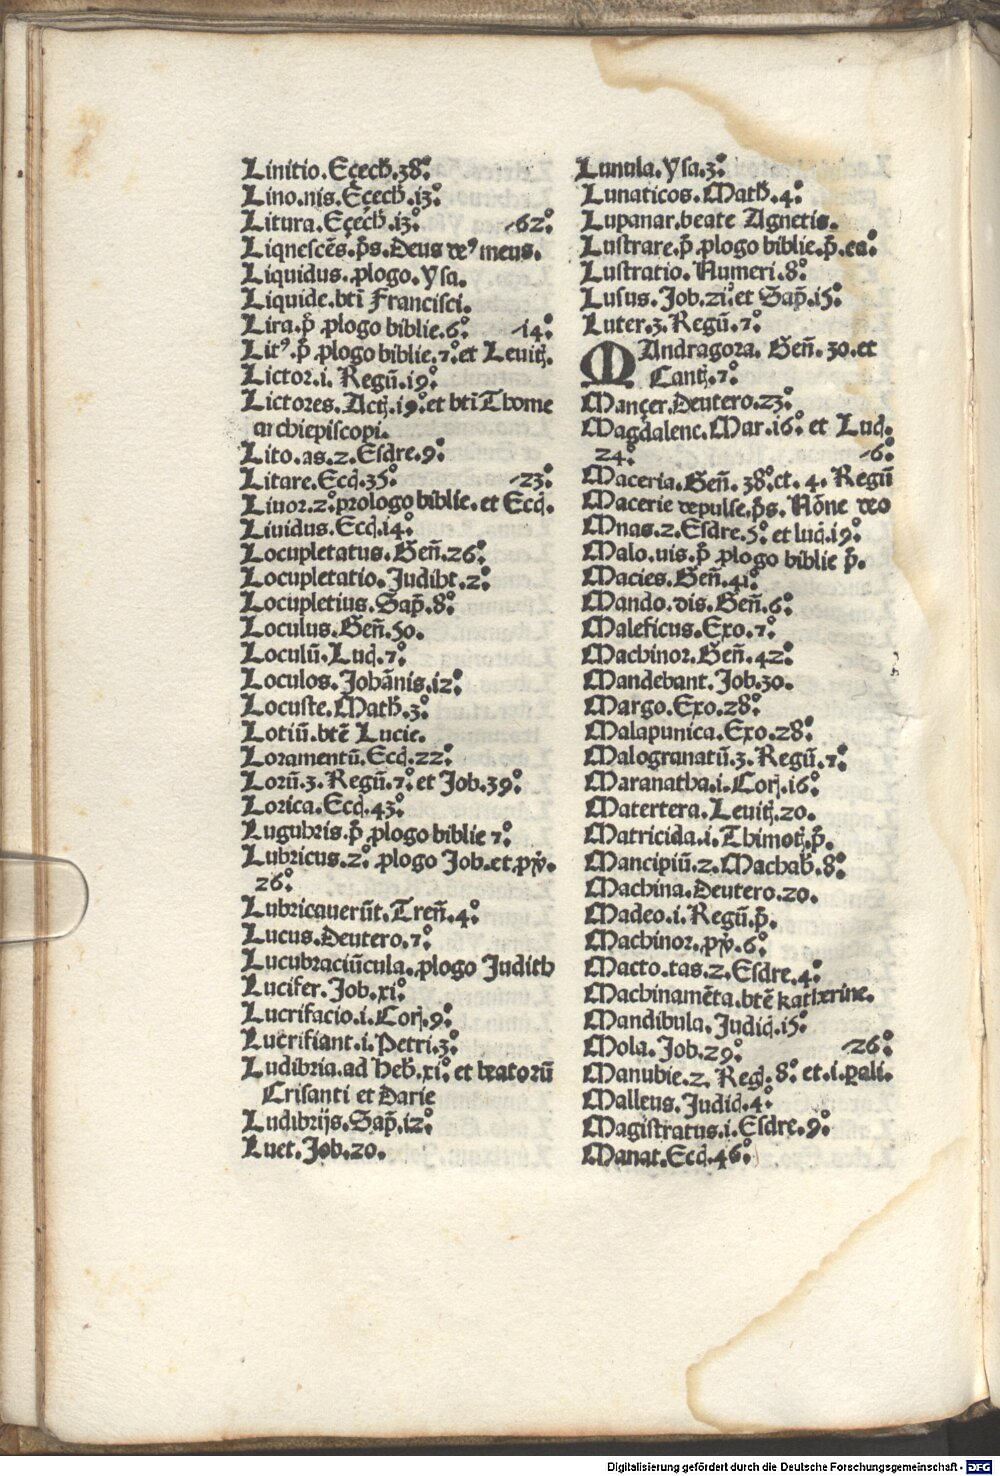 Linitio. Eçech̄. 38.°
Lino. nis. Eçech̄. i3.°
Litura. Eçech̄. i3.° 62.°
Liqnescēs. p̄s. Deus de9 meus.
Liquidus. plogo. Ysa.
Liquide. bti Francisci.
Lira. p̄ plogo biblie. 6.° i4.°
Lit9. p̄ plogo biblie. 7.° et Leuitj.
Lictor. i. Regū. i9.°
Lictores. Actj. i9.° et bti Thome
archiepiscopi.
Lito. as. 2. Esdre. 9.°
Litare. Eccl. 35.° 23.°
Liuor. 2.° prologo biblie. et Eccl.
Liuidus. Eccl. i4.°
Locupletatus. Geñ. 26.°
Locupletatio. Judiht. 2.°
Locupletius. Sap̄. 8.°
Loculus. Geñ. 50.
Loculū. Luc. 7.°
Loculos. Johānis. i2.°
Locuste. Math̄. 3.°
Lotiū. btē Lucie.
Loramentū. Eccl. 22.°
Lorū. 3. Regū. 7.° et Job. 39.°
Lorica. Eccl. 43.°
Lugubris. p̄ plogo biblie 7.°
Lubricus. 2.° plogo Job. et pv̄.
26.°
Lubricauerūt. Treñ. 4.°
Lucus. Deutero. 7.°
Lucubraciūcula. plogo Judith
Lucifer. Job. xi.°
Lucrifacio. i. Corj. 9.°
Lucrifiant. i. Petri. 3.°
Ludibria. ad heb̄. xi.° et beatorū
Crisanti et Darie
Ludibrijs. Sap̄. i2.°
Luet. Job. 20.
Lunula. Ysa. 3.°
Lunaticos. Math̄. 4.°
Lupanar. beate Agnetis.
Lustrare. p̄ plogo biblie. p̄. ca.°
Lustratio. Numeri. 8.°
Lusus. Job. 2i.° et Sap̄. i5.°
Luter. 3. Regū. 7.°
MAndragora. Geñ. 30. et
Cantj. 7.°
Mançer. Deutero. 23.°
Magdalene. Mar. i6.° et Luc.
24.° 6.°
Maceria. Geñ. 38.° et. 4. Regū
Macerie depulse. p̄s. Nōne deo
Mnas. 2. Esdre. 5.° et luc. i9.°
Malo. uis. p̄ plogo biblie p̄.
Macies. Geñ. 4i.°
Mando. dis. Geñ. 6.°
Maleficus. Exo. 7.°
Machinor. Geñ. 42.°
Mandebant. Job. 30.
Margo. Exo. 28.°
Malapunica. Exo. 28.°
Malogranatū. 3. Regū. 7.°
Maranatha. i. Corj. i6.°
Matertera. Leuitj. 20.
Matricida. i. Thimotj. p̄.
Mancipiū. 2. Machab̄. 8.°
Machina. Deutero. 20.
Madeo. i. Regū. p̄.
Machinor. pv̄. 6.°
Macto. tas. 2. Esdre. 4.°
Machinamēta. btē katherine.
Mandibula. Judic. i5.°
Mola. Job. 29.° 26.°
Manubie. 2. Reg. 8.° et. i. pali.
Malleus. Judic. 4.°
Magistratus. i. Esdre. 9.°
Manat. Eccl. 46.°
Digitalisierung gefördert durch die Deutsche Forschungsgemeinschaft - DFG